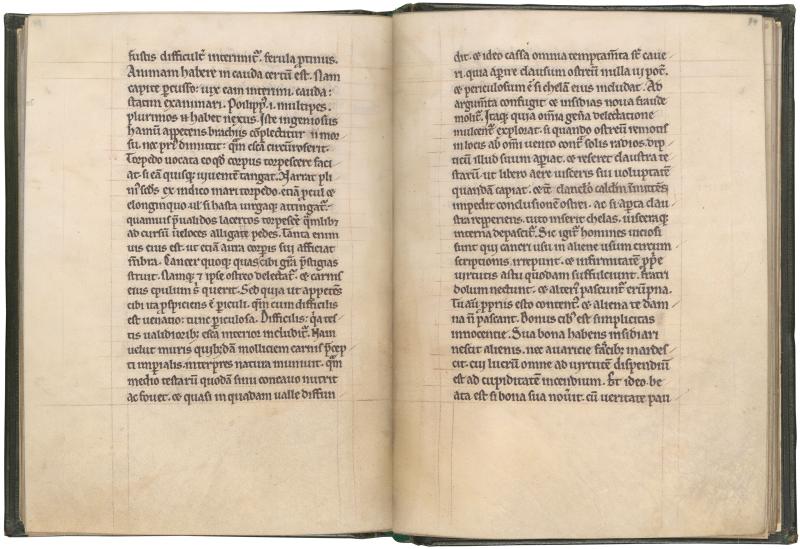 fustis difficult̄ interimit᷑. ferula ꝓtinus.
Animam habere in cauda certū est. Nam
capite ꝑcusso: uix eam interimi. cauda:
statim exanimari. Polippꝰ. i. multipes.
plurimos n̄ habet nexus. Iste ingeniosus
hamū appetens brachiis cōplectitur n̄ mor
su. nec priꝰ dimittit: qm̄ escā circūroserit.
Torpedo uocata eo qd̓ corpus torpescere faci
at. si eā quisq; uiuentē tangat. Narrat pli
niꝰ scd̓s ex indico mari torpedo. etiā ꝓcul ⁊
elonginquo. ul̓ si hasta uirgaq; attingat᷑.
quamuis p̄ualidos lacertos torpescē. quālibꝫ
ad cursū ueloces alligare pedes. Tanta enim
uis eius est. ut etiā aura corꝑis sui afficiat
mēbra. Cancer quoq; quas cibi grā p̄stigias
struit. Namq; ⁊ ipse ostreo delectat᷑. ⁊ carnis
eius epulum s̄ querit. Sed quia ut appetēs
cibi ita ꝓspiciens ē ꝑiculi. qm̄ cum difficilis
est uenatio: tunc ꝑiculosa. Difficilis: q̓a tes
tis ualidiorib; esca interior includit᷑. Nam
uelut muris quib;dā molliciem carnis p̄cep
ti imꝑialis interpres natura muniuit. qm̄
medio testarū quodā sinu concauo nutrit
ac fouet. ⁊ quasi in quadam ualle diffun
dit. ⁊ ideo cassa omnia temptam̄ta st̄ caue
ri. quia aꝑire clausum ostreū nulla ui pot̄.
⁊ periculosum ē si chelā eius includat. Ab
argum̄ta confugit. ⁊ insidias noua fraude
molit᷑. Itaq; quia om̄ia geñā delectatione
mulcent᷑. explorat. si quando ostreū remotis
in locis ab om̄i uento contᷓ solis radios. dip
ticū illud suum aꝑiat. ⁊ reseret claustra te
starū. ut libero aere uisceris sui uoluptatē
quandā capiat. ⁊ tc̄ clanculo calculū inmittēs
impedit conclusionē ostrei. ac si aꝑta clau
stra reꝑperiens. tuto inserit chelas. uisceraq;
interna depascit᷑. Sic igit᷑ homines uiciosi
sunt qui cancri usu in aliene usum circum
scriptionis irrepunt. ⁊ infirmitatē ꝓp̄e
uirtutis astu quodam suffulciunt. fratri
dolum nectunt. ⁊ alteriꝰ pascunt᷑ erūpna.
Tu aū ꝓpriis esto contentꝰ. ⁊ aliena te dam
na n̄ pascant. Bonus cibꝰ est simplicitas
innocentie. Sua bona habens insidiari
nescit alienis. nec auaricie facib; inardes
cit. cui lucrū omne ad uirtutē dispendiū
est ad cupiditatē incendium. Et ideo be
ata est si bona sua nouit. cū ueritate pau